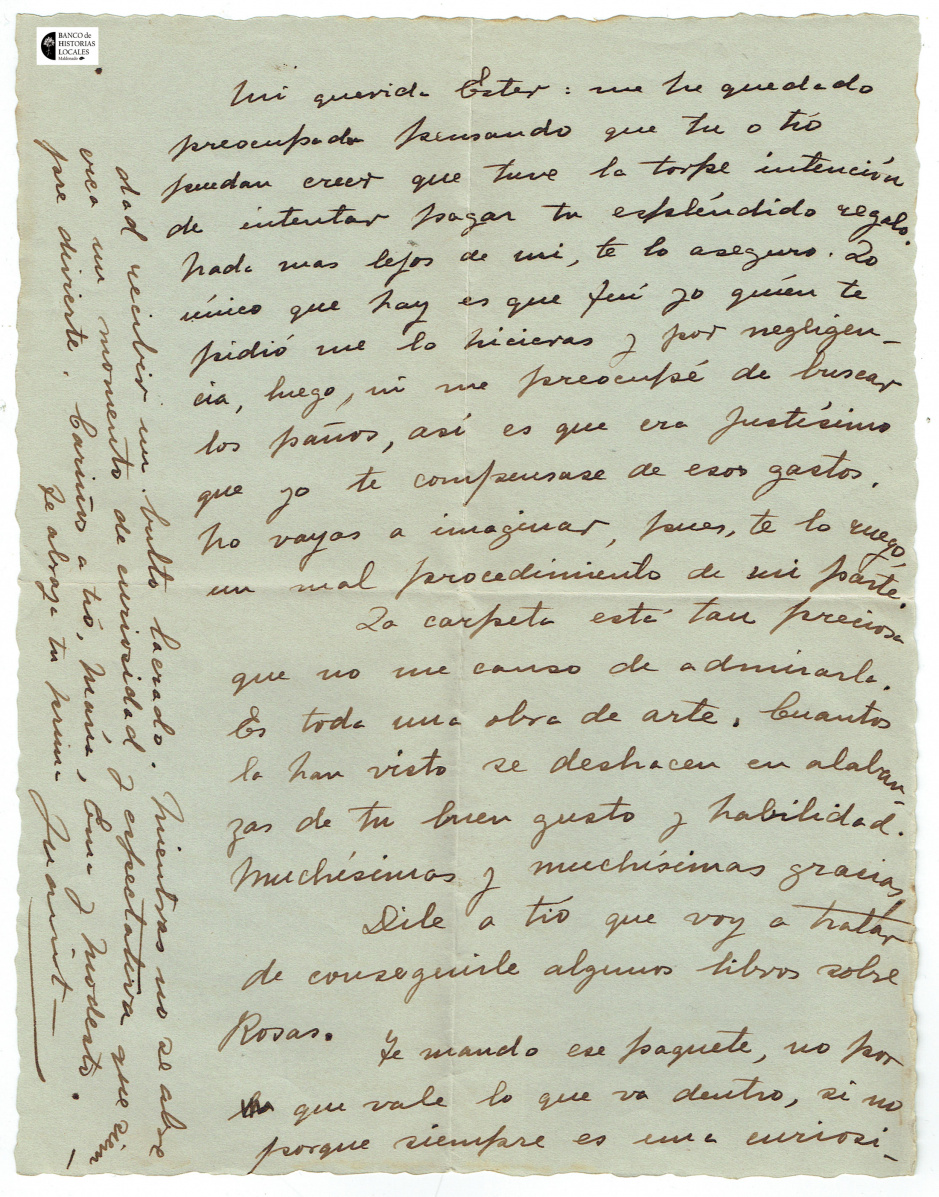 BANCO de
HISTORIAS
LOCALES
Maldonado
Mi querida Ester: me he quedado
preocupada pensando que tu o tío
puedan creer que tuve la torpe intención
de intentar pagar tu espléndido regalo.
Nada mas lejos de mi, te lo aseguro. Lo
único que hay es que fuí yo quién te
pidió me la hicieras y por negligen-
cia, luego, ni me preocupé de buscar
los paños, así es que era justísimo
que yo te compensase de esos gastos.
No vayas a imaginar, pues, te lo ruego,
un mal procedimiento de mi parte.
La carpeta está tan preciosa
que no me canso de admirarla.
Es toda una obra de arte. Cuantos
la han visto se deshacen en alaban-
zas de tu buen gusto y habilidad.
Muchísimas y muchísimas gracias,
Dile a tío que voy a tratar
de conseguirle algunos libros sobre
Rosas.
Te mando ese paquete, no por
que vale lo que va dentro, si no
porque siempre es una curiosi-
dad recibir un bulto lacrado. Mientras no se abre
vica un momento de curiosidad y espectativa que siem
pre divierte. Cariños a tío, María, Ema y Modesto.
Te abraza tu prima